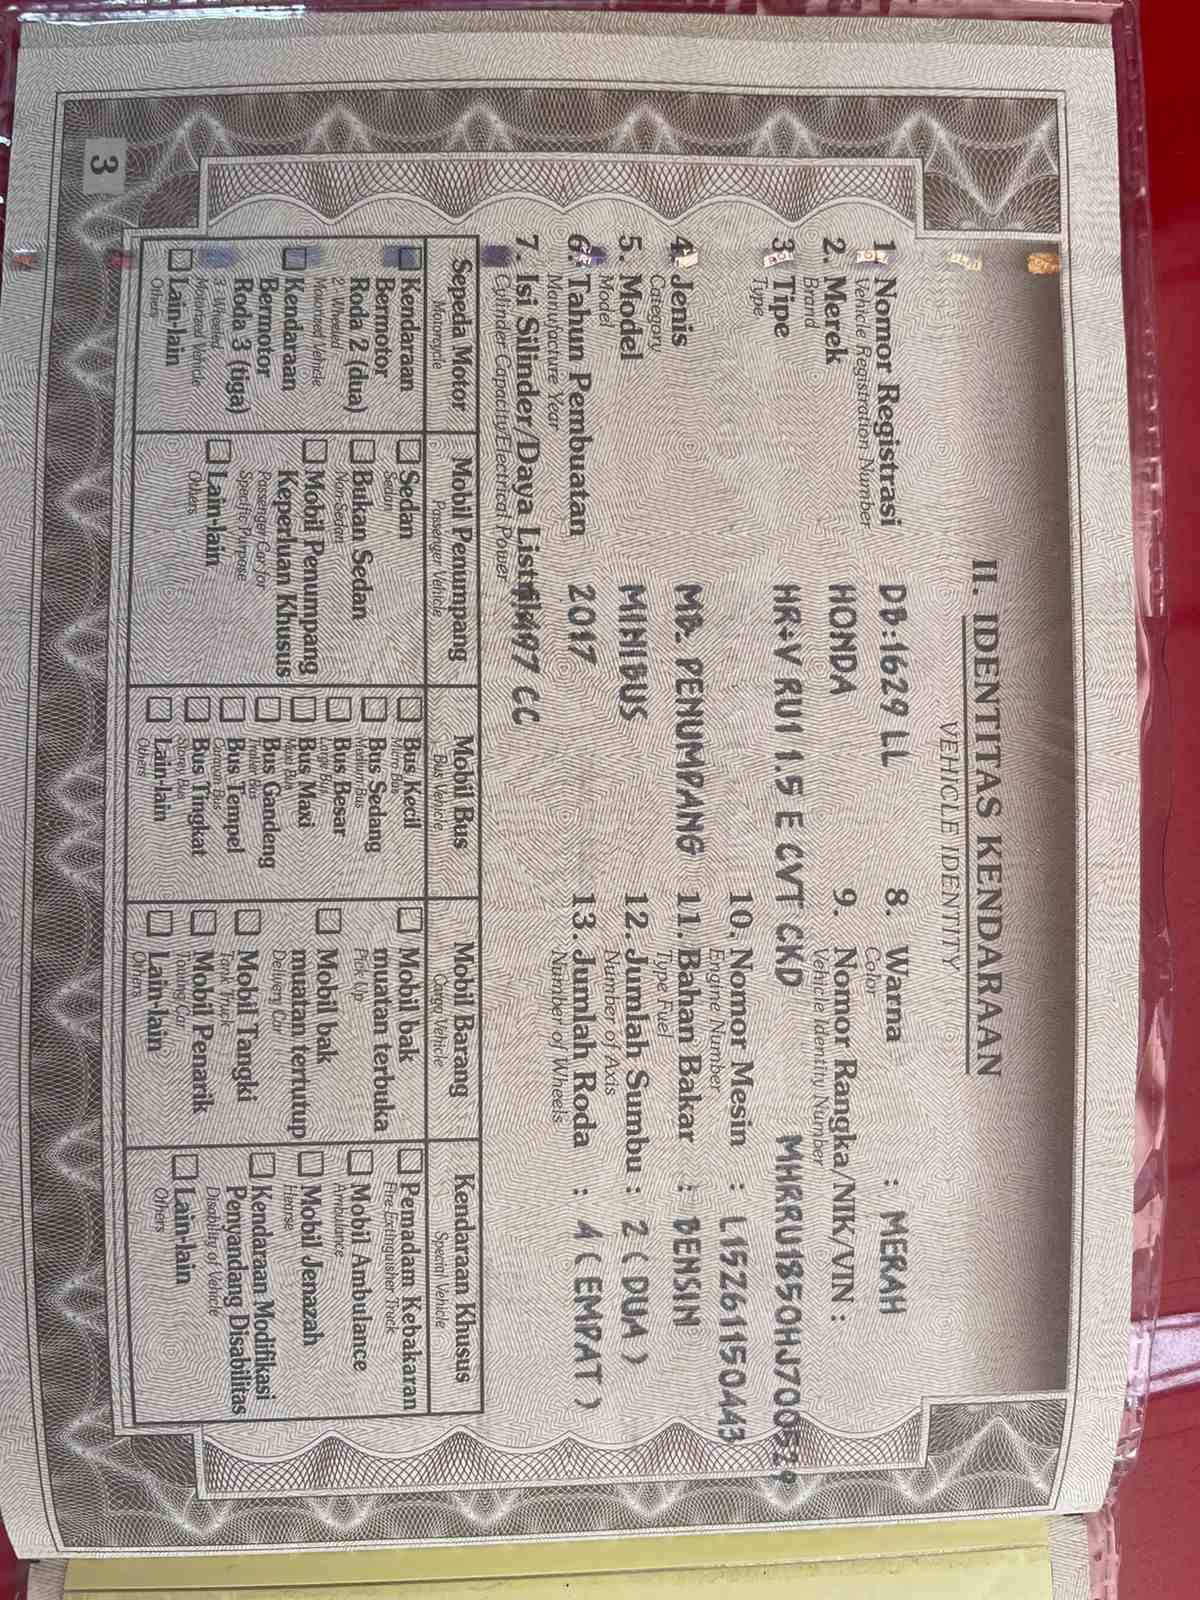 II. IDENTITAS KENDARAAN
VEHICLE IDENTITY
1. Nomor Registrasi DB:1629 LL
Vehicle Registration Number
2. Merek HONDA
Brand
3. Tipe HR-V RU1 1.5 E CVT CKD
Type
4. Jenis MB. PENUMPANG
Category
5. Model MINIBUS
Model
6. Tahun Pembuatan 2017
Manufacture Year
7. Isi Silinder/Daya Listrik 1497 CC
Cylinder Capacity/Electrical Power
8. Warna : MERAH
Color
9. Nomor Rangka/NIK/VIN :
Vehicle Identity Number
MHRRU1850HJ700529
10. Nomor Mesin : L15Z61150443
Engine Number
11. Bahan Bakar : BENSIN
Type Fuel
12. Jumlah Sumbu : 2 ( DUA )
Number of Axis
13. Jumlah Roda : 4 ( EMPAT )
Number of Wheels
Sepeda Motor
Motorcycle
Kendaraan
Bermotor
Roda 2 (dua)
2 - Wheeled
Motorized Vehicle
Kendaraan
Bermotor
Roda 3 (tiga)
3-Wheeled
Motorized Vehicle
Lain-lain
Others
Mobil Penumpang
Passenger Vehicle
Sedan
Sedan
Bukan Sedan
Non-Sedan
Mobil Penumpang
Keperluan Khusus
Passenger Car for
Specific Purpose
Lain-lain
Others
Mobil Bus
Bus Vehicle
Bus Kecil
Micro Bus
Bus Sedang
Medium Bus
Bus Besar
Large Bus
Bus Maxi
Maxi Bus
Bus Gandeng
Trailer Bus
Bus Tempel
Bus Tingkat
Lain-lain
Others
Mobil Barang
Cargo Vehicle
Mobil bak
muatan terbuka
Pick Up
Mobil bak
muatan tertutup
Delivery Car
Mobil Tangki
Tank Truck
Mobil Penarik
Towing Car
Lain-lain
Others
Kendaraan Khusus
Special Vehicle
Pemadam Kebakaran
Fire Extinguisher Truck
Mobil Ambulance
Ambulance
Mobil Jenazah
Hearse
Kendaraan Modifikasi
Penyandang Disabilitas
Disability of Vehicle
Lain-lain
Others
3